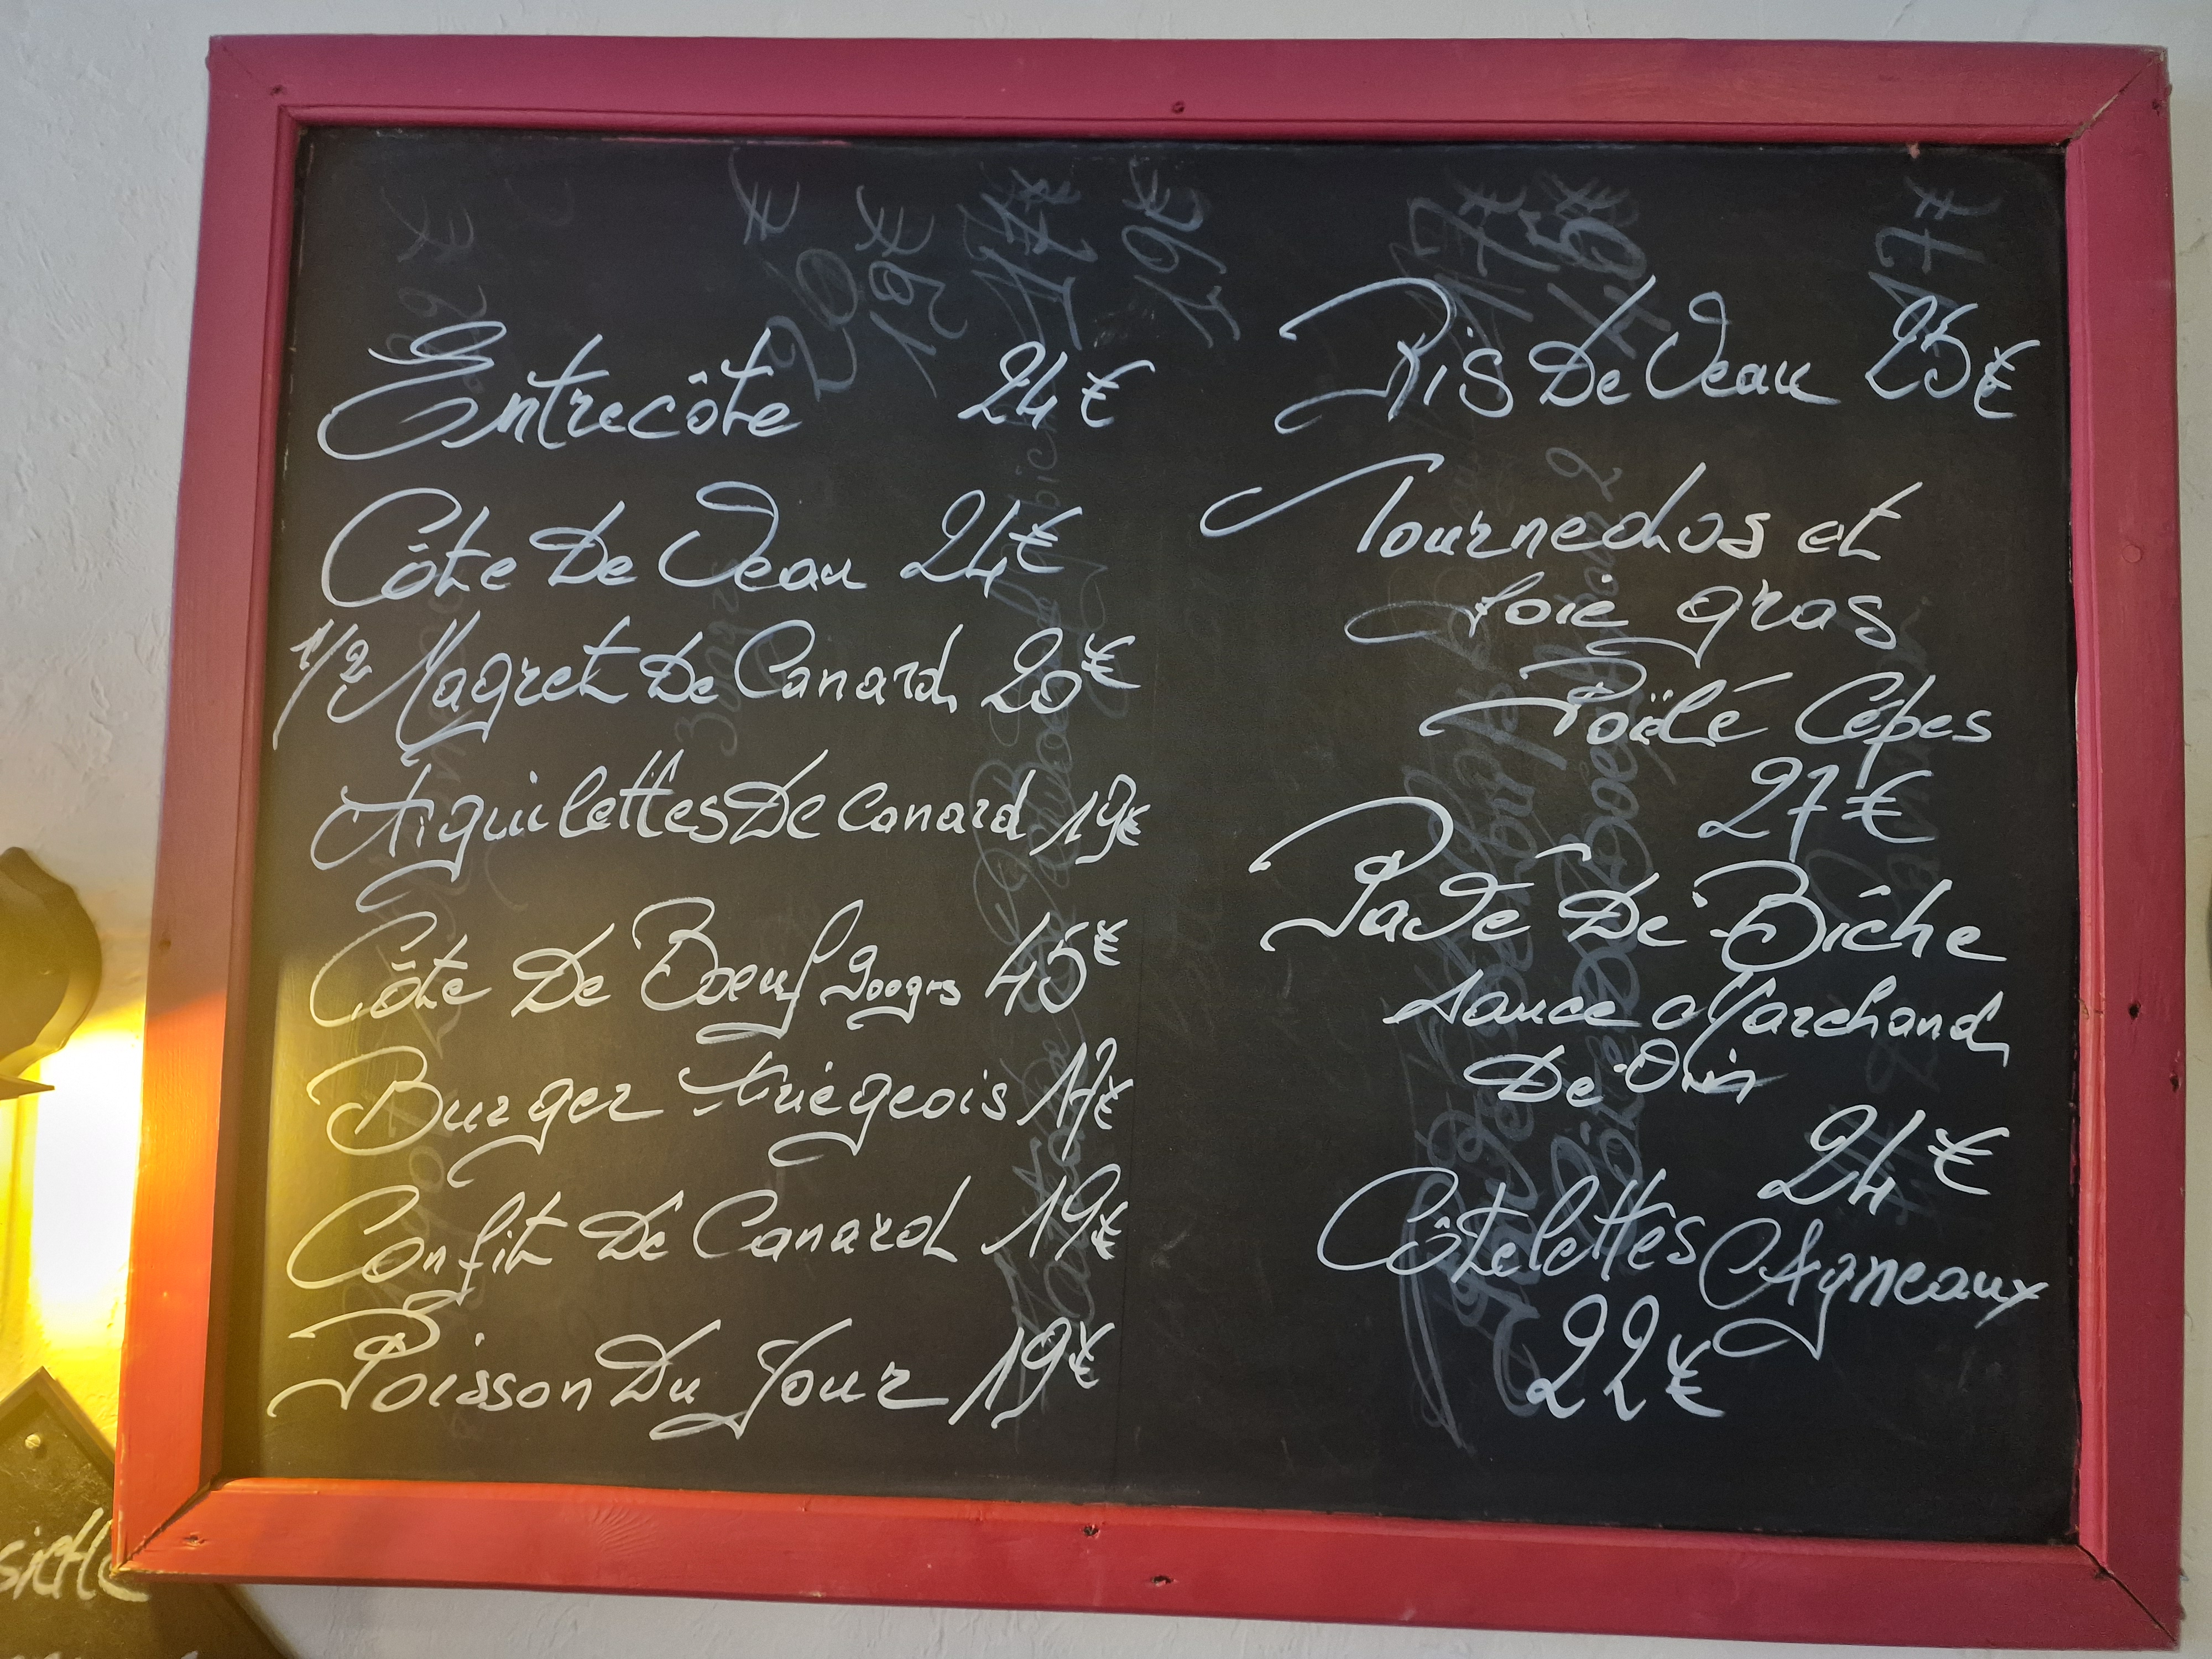 Entrecôte 24€
Côte De Veau 24€
1/2 Magret De Canard 20€
Aiguilettes De Canard 19€
Côte De Boeuf 900grs 45€
Burger Ariégeois 17€
Confit De Canard 19€
Poisson Du Jour 19€
Ris De Veau 25€
Tournedos et
foie gras
Poëlé Cépes
27€
Pavé De Biche
sauce Marchand
De Vin
24€
Côtelettes d'Agneaux
22€